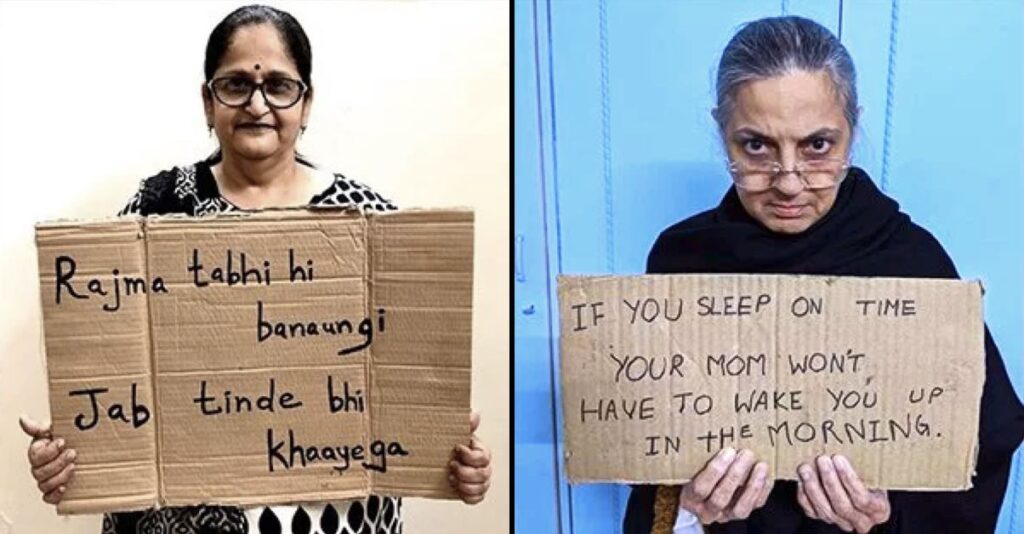 Rajma tabhi hi
banaungi
Jab tinde bhi
khaayega
IF YOU SLEEP ON TIME
YOUR MOM WON'T
HAVE TO WAKE YOU UP
IN THE MORNING.